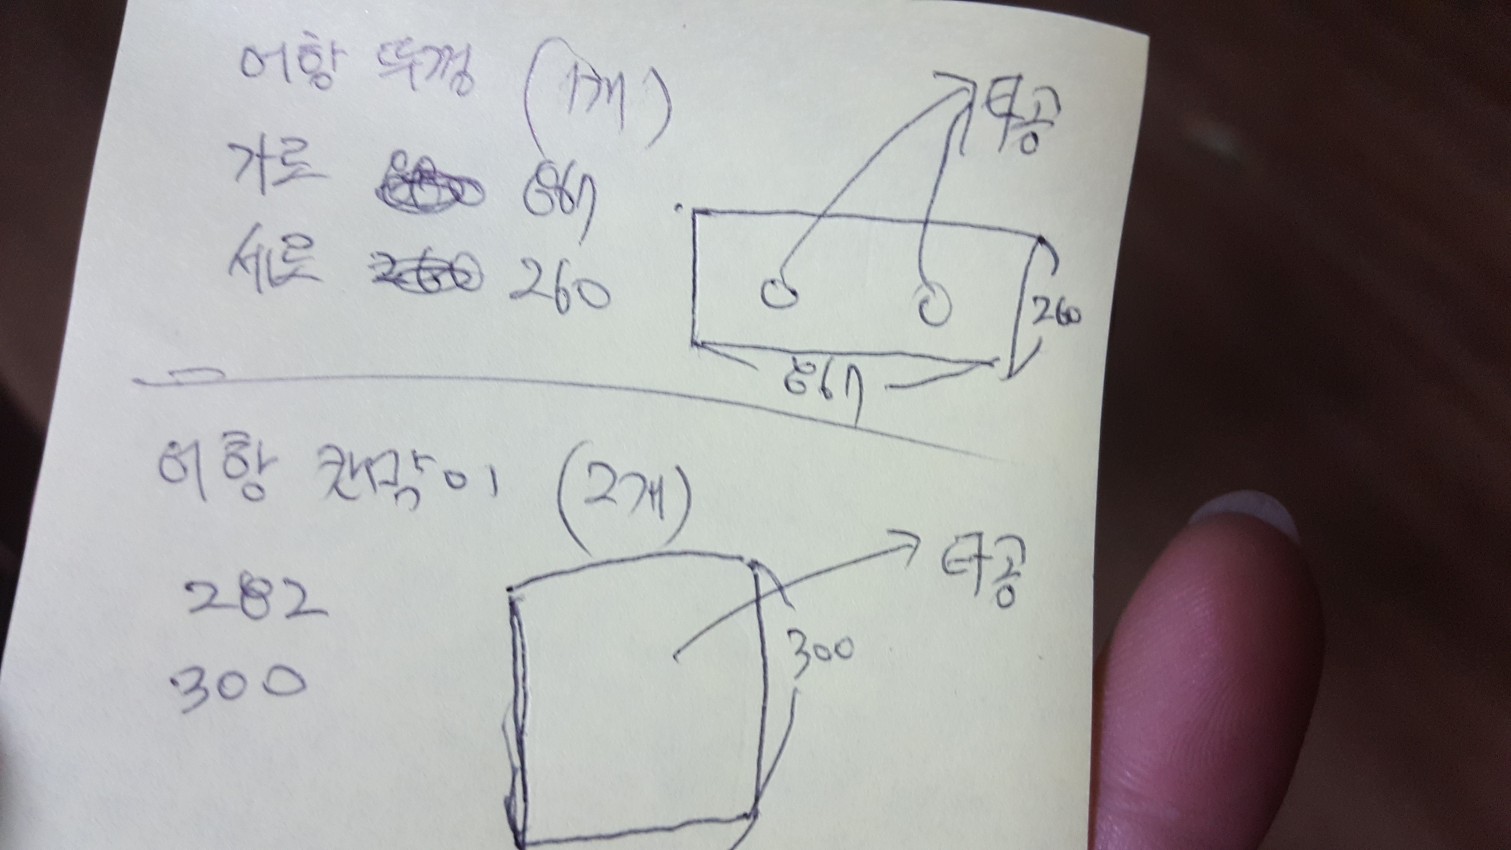 어항 뚜껑 (1개)
타공
가로 567
세로 260
260
567
어항 칸막이 (2개)
타공
282
300
300